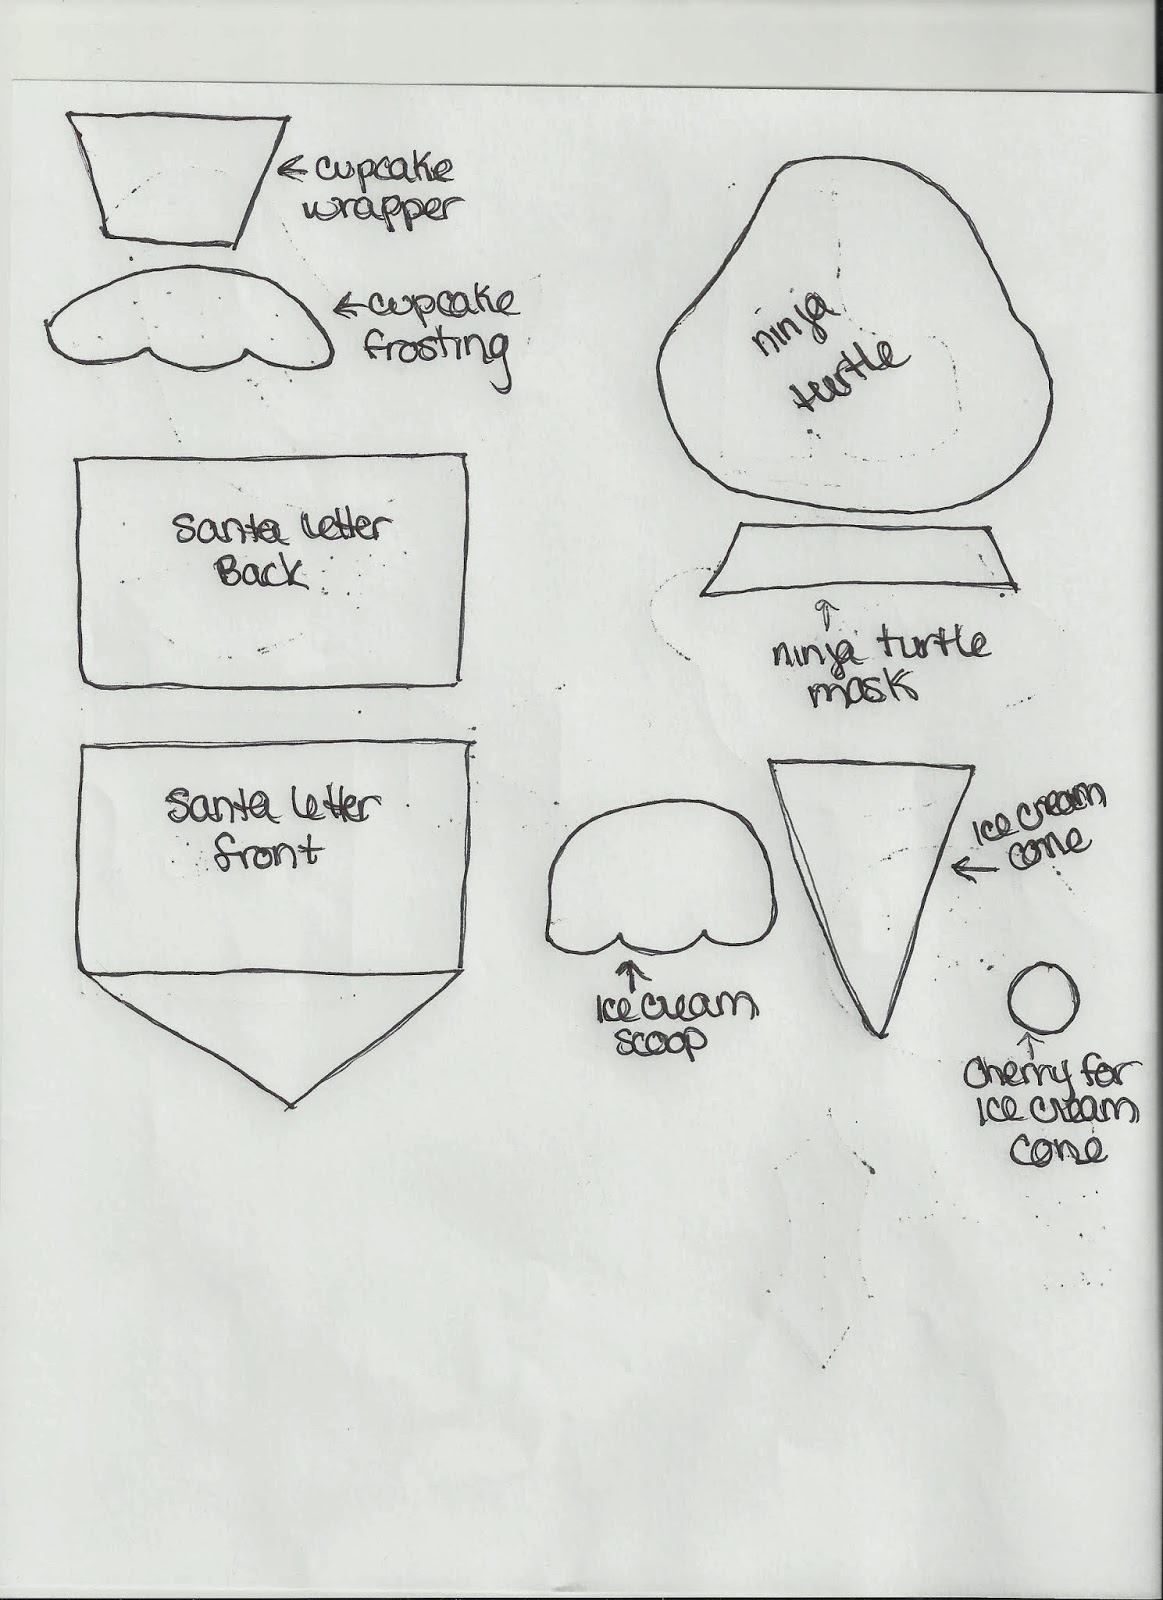 cupcake
wrapper
cupcake
frosting
ninja
turtle
Santa Letter
Back
ninja turtle
mask
Santa letter
front
ice cream
cone
ice cream
scoop
cherry for
ice cream
cone